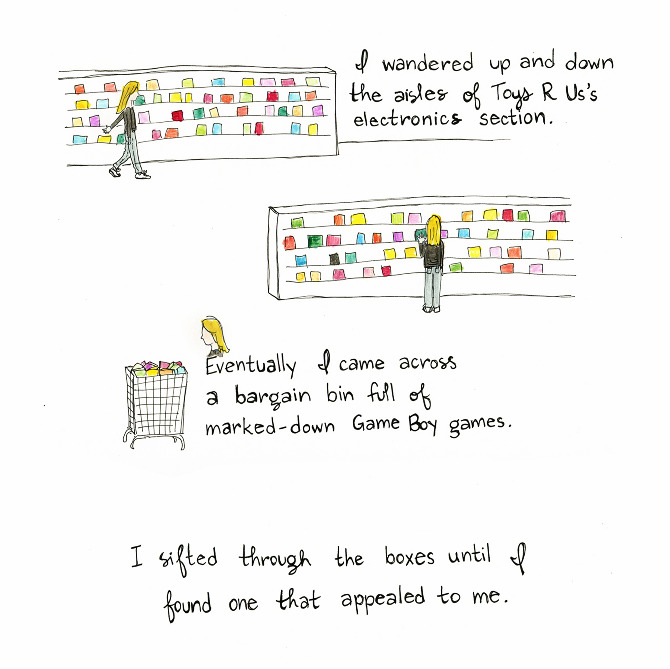 I wandered up and down
the aisles of Toys R Us's
electronics section.
Eventually I came across
a bargain bin full of
marked-down Game Boy games.
I sifted through the boxes until I
found one that appealed to me.